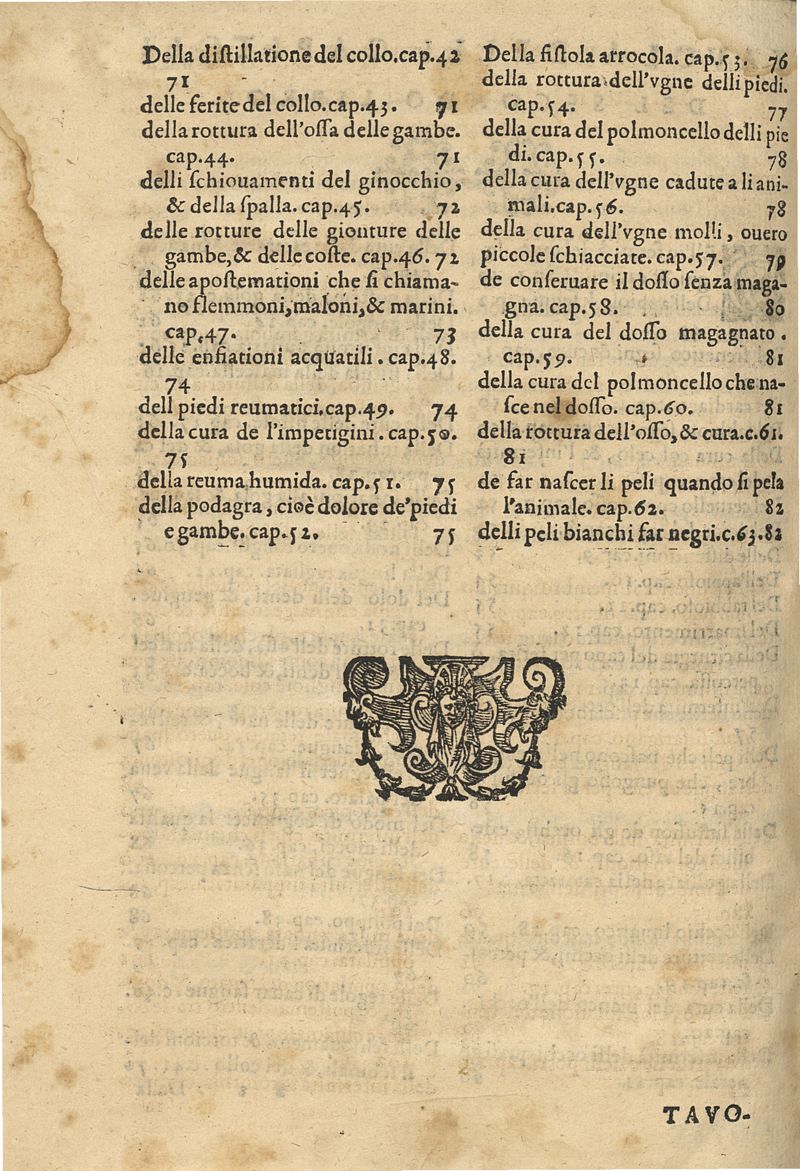 Della diſtillatione del collo.cap.42
71
delle ferite del collo.cap.43. 71
della rottura dell'oſſa delle gambe.
cap.44. 71
delli ſchiouamenti del ginocchio,
& della ſpalla. cap.45. 72
delle rotture delle gionture delle
gambe,& delle coſte. cap.46. 72
delle apoſtemationi che ſi chiama-
no flemmoni,maloni,& marini.
cap.47. 73
delle enfiationi acquatili. cap.48.
74
dell piedi reumatici.cap.49. 74
della cura de l'impetigini. cap.50.
75
della reuma humida. cap.51. 75
della podagra, cioè dolore de'piedi
e gambe. cap.52. 75
Della fiſtola arrocola. cap.53. 76
della rottura dell'vgne delli piedi.
cap.54. 77
della cura del polmoncello delli pie
di. cap.55. 78
della cura dell'vgne cadute a li ani-
mali.cap.56. 78
della cura dell'vgne molli, ouero
piccole ſchiacciate. cap.57. 79
de conſeruare il doſſo ſenza maga-
gna. cap.58. 80
della cura del doſſo magagnato.
cap.59. 81
della cura del polmoncello che na-
ſce nel doſſo. cap.60. 81
della rottura dell'oſſo,& cura.c.61.
81
de far naſcer li peli quando ſi pela
l'animale. cap.62. 82
delli peli bianchi far negri.c.63.82
TAVO-